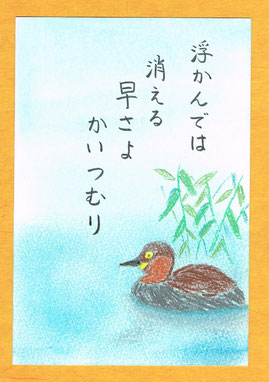 浮かんでは
消える
早さよ
かいつむり